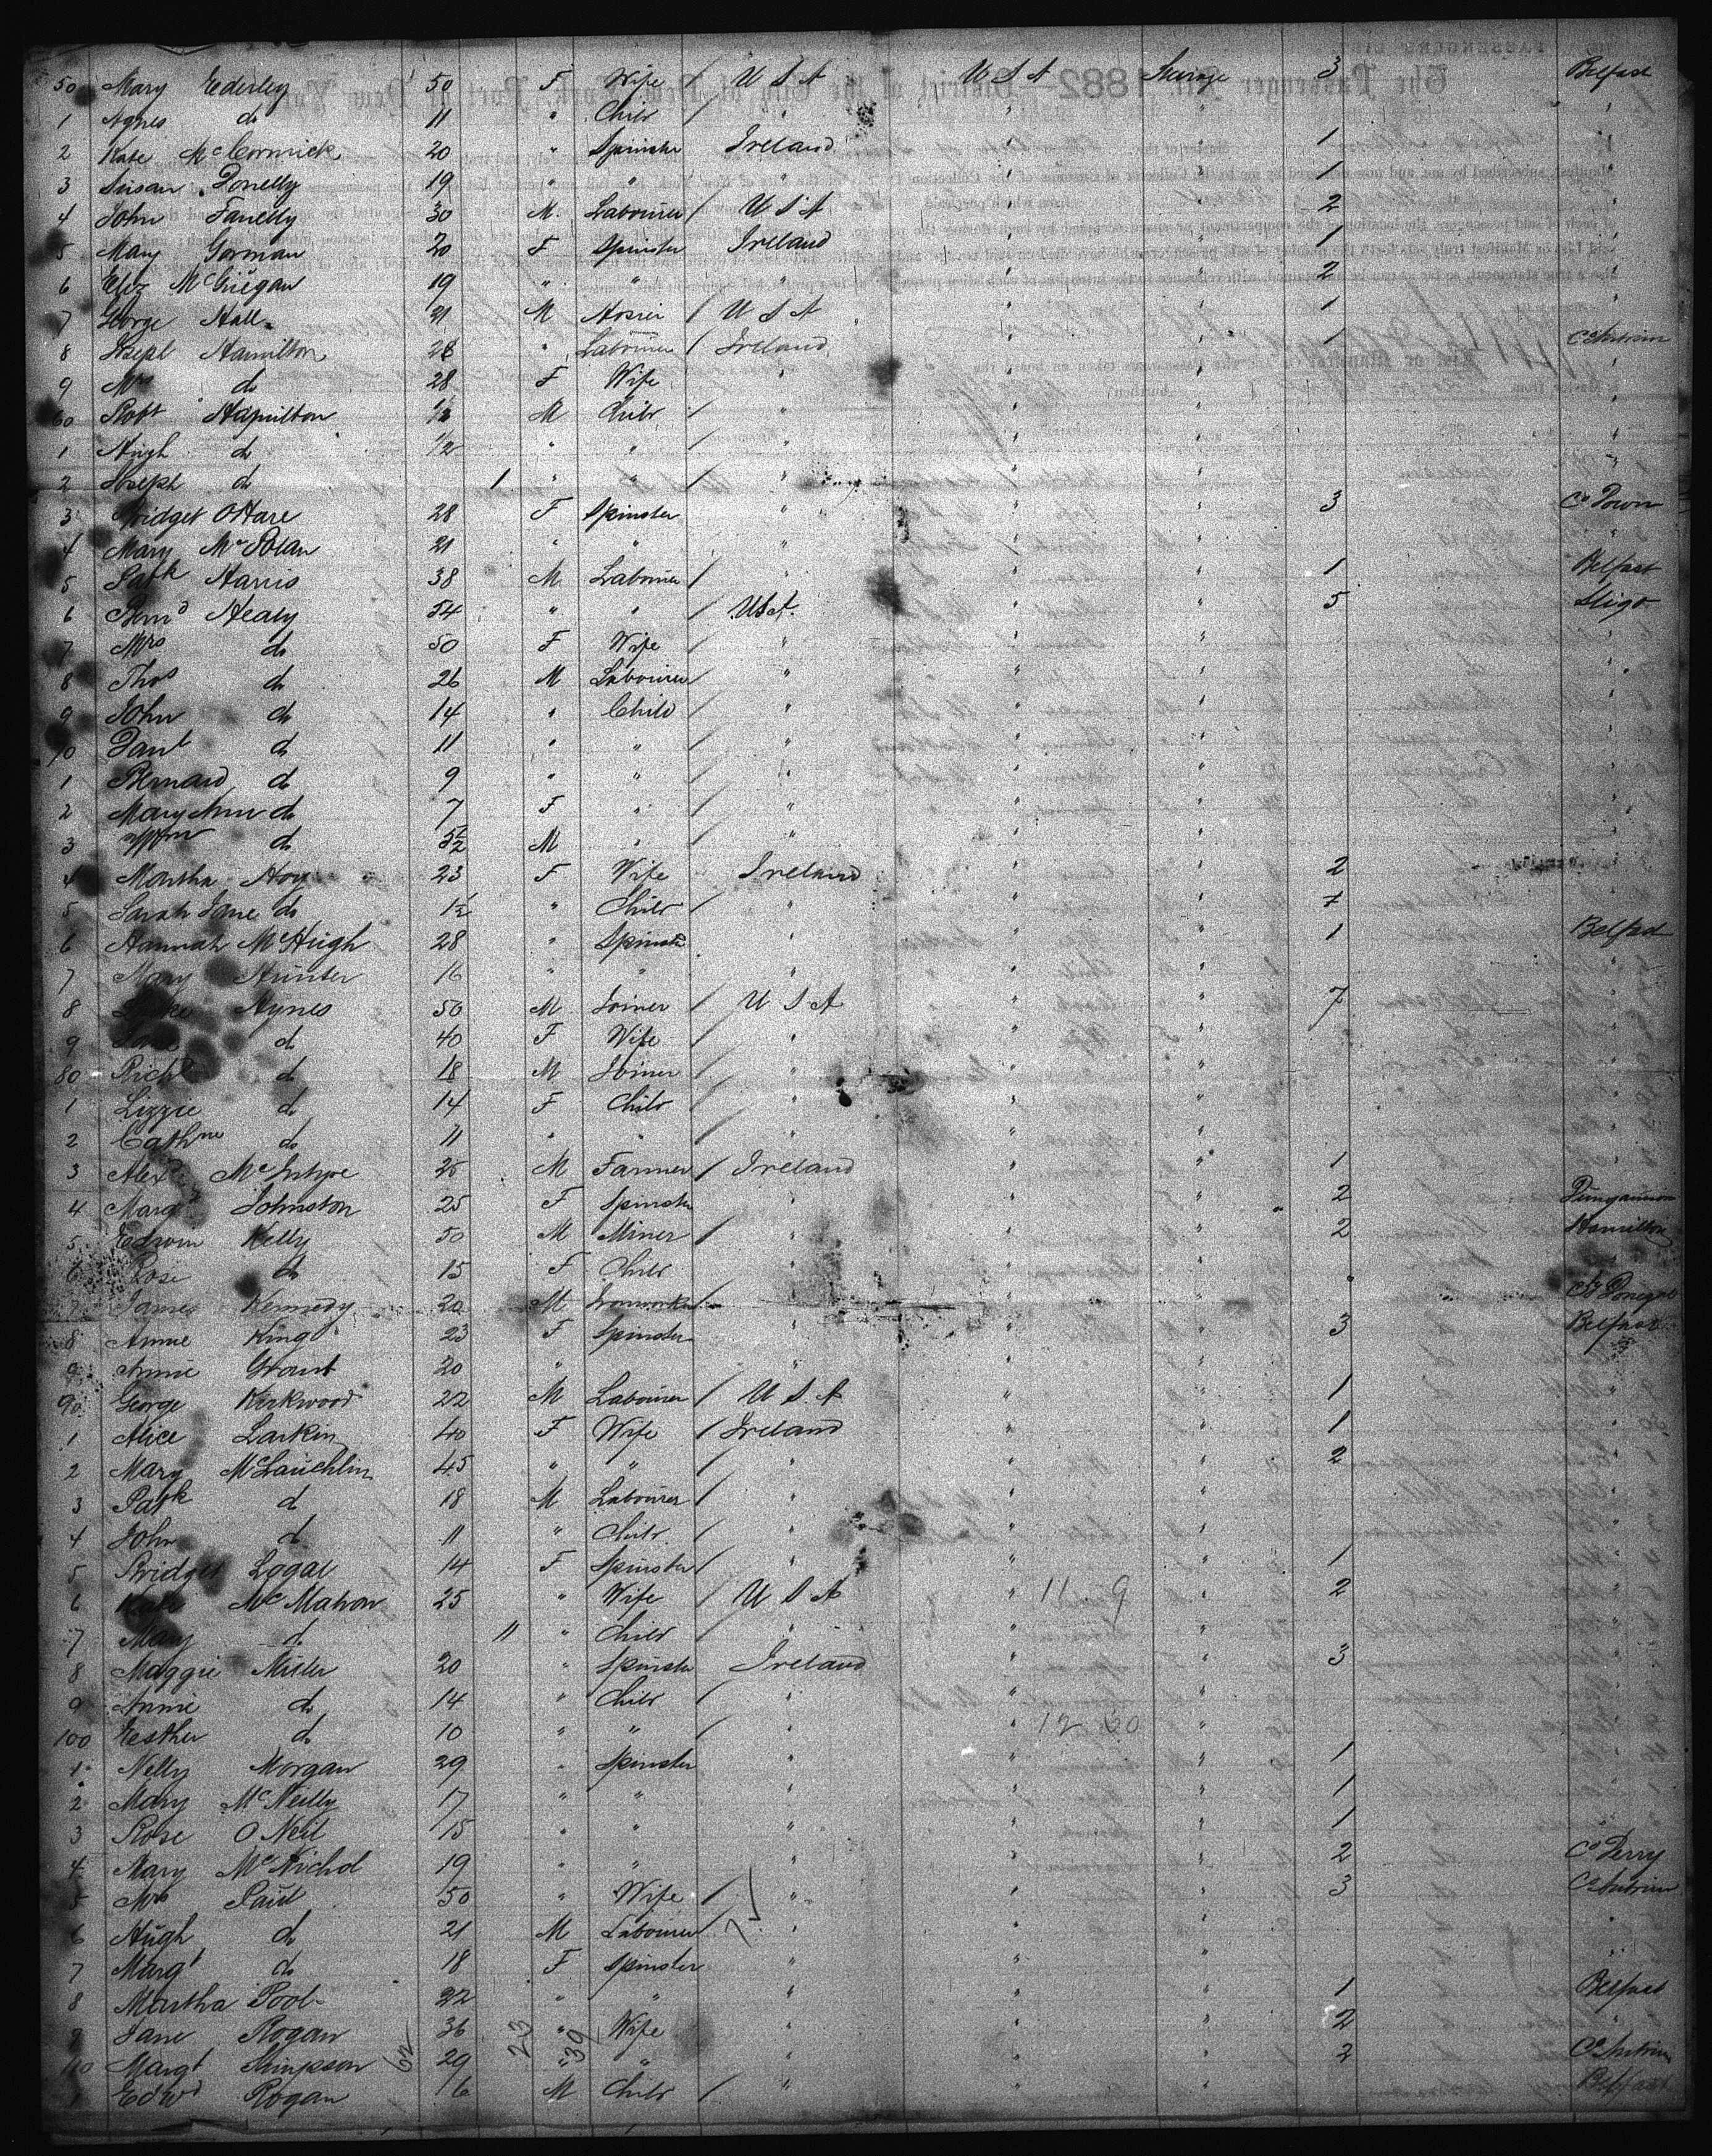 50 Mary Ederley 50 F Wife / U S A U S A Steerage 3 Belfast
1 Agnes do 11 " Child / " " " "
2 Kate McCormick 20 " Spinster Ireland " " 1 "
3 Susan Donelly 19 " " " " " 1 "
4 John Fanelly 30 M. Labourer / U S A " " 2 "
5 Mary Gorman 20 F Spinster Ireland " " 1 "
6 Eliz McGuigan 19 " " " " " 2 "
7 George Hall 21 M / U S A " " 1 "
8 Joseph Hamilton 28 " Labourer / Ireland " " 1 Co Antrim
9 Mrs do 28 F Wife " " " "
60 Robt Hamilton M Child / " " " "
1 Hugh do 1/2 " " / " " " "
2 Joseph do 1 " " / " " " "
3 Bridget O'Hare 28 F Spinster " " " 3 Co Down
4 Mary McPolan 21 " " " " " "
5 Patk Harris 38 M Labourer / " " " 1 Belfast
6 Bernd Healy 54 " " / U S A. " " 5 Sligo
7 Mrs do 50 F Wife / " " " "
8 Thos do 26 M Labourer / " " " "
9 John do 14 " Child / " " " "
70 Danl do 11 " " / " " " "
1 Bernard do 9 " " / " " " "
2 Mary Ann do 7 F " / " " " "
3 Wm do 5 1/2 M " / " " " "
4 Martha Hoy 23 F Wife Ireland " " 2 "
5 Sarah Jane do 1 1/2 " Child / " " " "
6 Hannah McHugh 28 " Spinster " " " 1 Belfast
7 Mary Hunter 16 " " " " " "
8 Hynes 50 M Joiner / U S A " " 7 "
9 do 40 F Wife / " " " "
80 Richd do 18 M Joiner / " " " "
1 Lizzie do 14 F Child / " " " "
2 Cathne do 11 " " / " " " "
3 Alexr McIntyre 25 M Farmer / Ireland " " 1 "
4 Margt Johnston 25 F Spinster " " " 2 Dungannon
5 Edwin Kelly 50 M Miner / " " " 2 Hamilton
6 Rose do 15 F Child " " " "
7 James Kennedy 20 M Ironworker / " " " " Co Donegal
8 Annie King 23 F Spinster " " " 3 Belfast
9 Annie Grant 20 " " " " "
90 George Kirkwood 22 M Labourer / U S A " " 1 "
1 Alice Larkin 40 F Wife / Ireland " " 1 "
2 Mary McLauchlin 45 " " / " " " 2 "
3 Patk do 18 M Labourer / " " " "
4 John do 11 " Child / " " " "
5 Bridget Logal 14 F Spinster / " " " 1 "
6 Kate McMahon 25 " Wife / U S A " 11 9 " 2 "
7 Mary do 11 " Child / " " " "
8 Maggie Miller 20 " Spinster Ireland " " 3 "
9 Annie do 14 " Child / " " " "
100 Eesther do 10 " " / " " 12 30 " "
1 Nelly Morgan 29 " Spinster " " " 1 "
2 Mary McNeilly 17 " " " " " 1 "
3 Rose O Neil 15 " " " " " 1 "
4 Mary McNichol 19 " " " " " 2 Co Derry
5 Mrs Paul 50 " Wife / " " " 3 Co Antrim
6 Hugh do 21 M Labourer / " " " "
7 Margt do 18 F Spinster " " " "
8 Martha Pool 22 " " " " " 1 Belfast
9 Jane Rogan 36 " Wife " " " 2 "
110 Margt Simpson 29 " " " " " 2 Co Antrim
1 Edwd Rogan 6 M Child / " " " Belfast
62 23 39